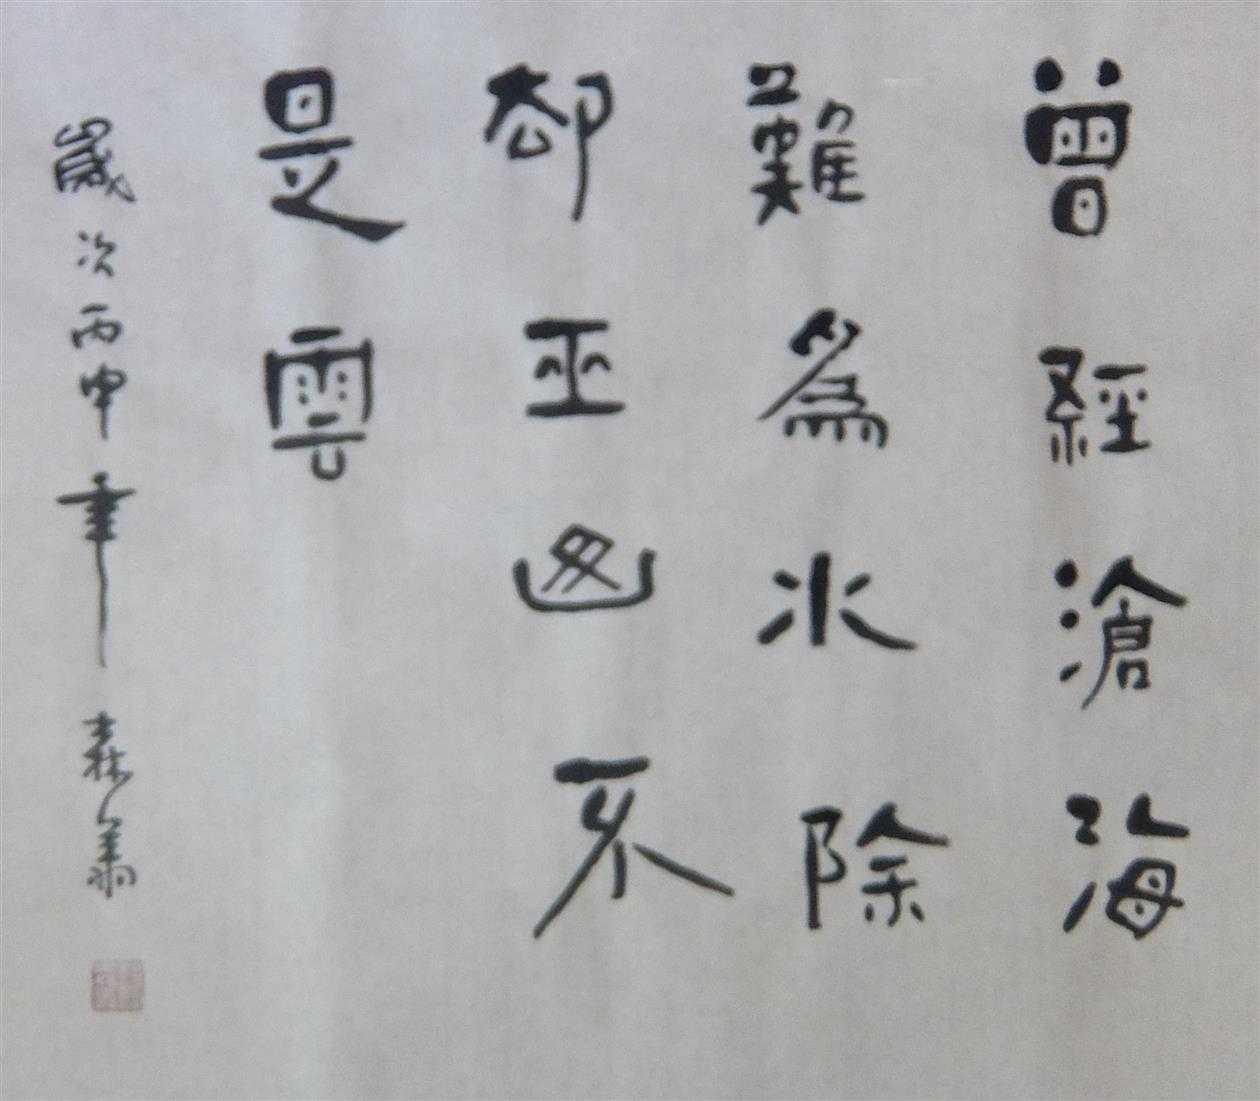 曾經滄海
難爲水除
却巫山不
是雲
歲次丙申年 森